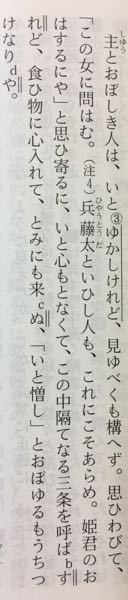 主とおぼしき人は、いと③ゆかしけれど、見ゆべくも構へず。思ひわびて、
しゆう
「この女に問はむ。(注4)兵藤太といひし人も、これにこそあらめ。姫君のお
ひやうとうだ
はするにや」と思ひ寄るに、いと心もとなくて、この中隔てなる三条を呼ばbす
れど、食ひ物に心入れて、とみにも来cぬ、「いと憎し」とおぼゆるもうちつ
けなりdや。